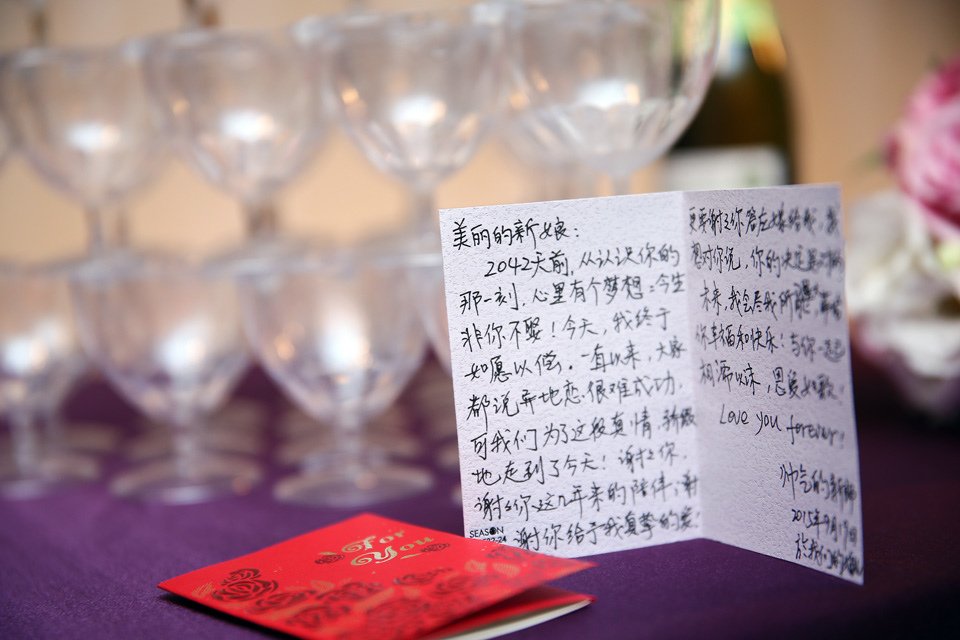 美丽的新娘：
2042天前，从认识你的
那一刻，心里有个梦想：今生
非你不娶！今天，我终于
如愿以偿。一直以来，大家
都说异地恋很难成功，
可我们为了这段真情，
地走到了今天！谢谢你，
谢谢你这几年来的陪伴，谢
谢你给予我真挚的爱！
更要谢谢你答应嫁给我，我
想对你说，你的决定是
未来，我会尽我所
你幸福和快乐！与你一起
相濡以沫，恩爱如歌！
Love you forever!
帅气的新郎
2015年9月19日
SEASON
For
You